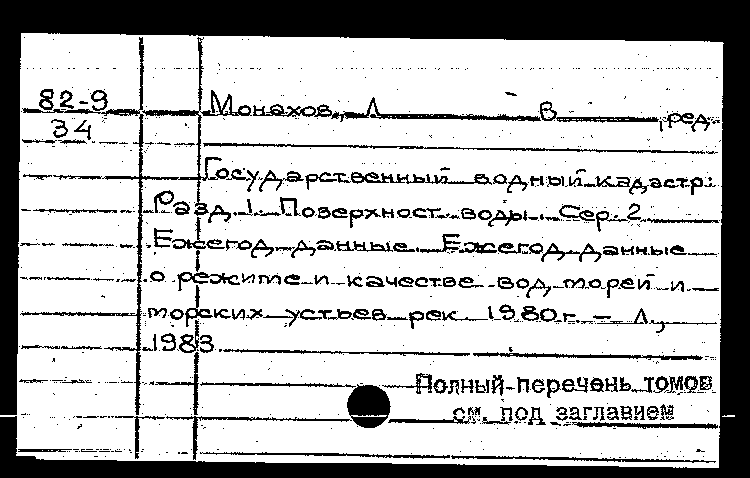 82-9
34
Монахов, Л В , ред.
Государственный водный кадастр:
Разд. 1. Поверхност. воды. Сер. 2
Ежегод. данные. Ежегод. данные
о режиме и качестве вод морей и
морских устьев рек 1980 г. – Л.,
1983
Полный перечень томов
см. под заглавием